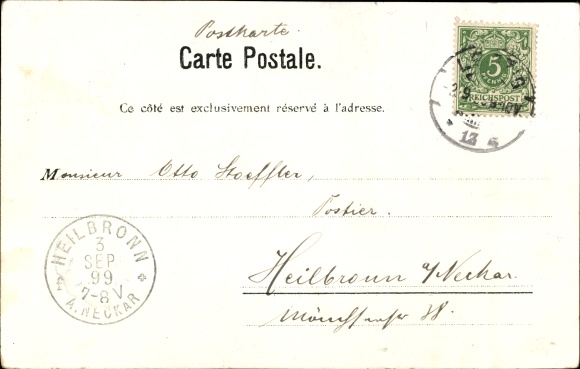 Postkarte.
Carte Postale.
Ce côté est exclusivement réservé à l'adresse.
5
PFENNIG
REICHSPOST
13
Monsieur Otto Stoeffler,
Postier.
Heilbronn a/Neckar.
38.
HEILBRONN
3
SEP
99
7-8 V
A. NECKAR